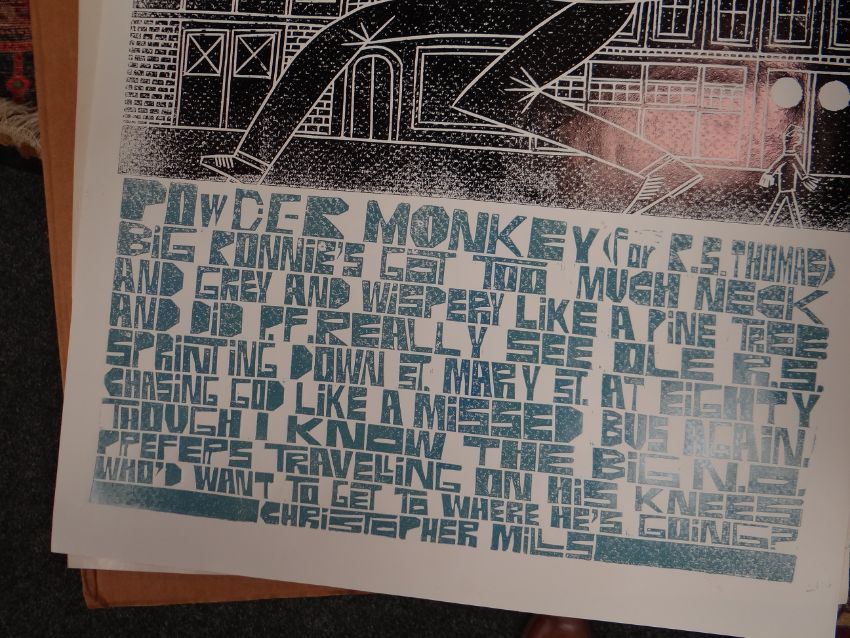 POWDER MONKEY (for R.S. THOMAS)
BIG RONNIE'S GOT TOO MUCH NECK
AND GREY AND WISPERY LIKE A PINE TREE
AND DID P.F. REALLY SEE OLE R.S.
SPRINTING DOWN ST. MARY ST. AT EIGHTY
CHASING GOD LIKE A MISSED BUS AGAIN.
THOUGH I KNOW THE BIG N.O.
PREFERS TRAVELLING ON HIS KNEES
WHO'D WANT TO GET TO WHERE HE'S GOING?
CHRISTOPHER MILLS